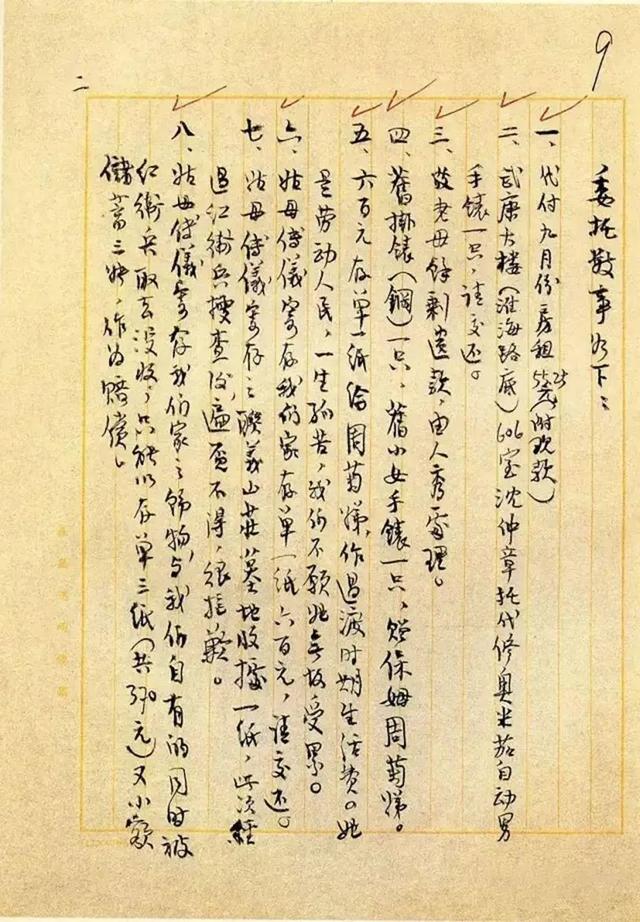 9
委托数事如下：
一、代付九月份房租55.25元（附现款）
二、武康大楼（淮海路底）606室沈仲章托代修奥米茄自动男
手錶一只，请交还。
三、故老母餘剩遗款，由人秀處理。
四、舊掛錶（鋼）一只，舊小女手錶一只，贈保姆周菊娣。
五、六百元存单一纸给周菊娣，作过渡时期生活费。她
是劳动人民，一生孤苦，我们不愿她无故受累。
六、姑母傅儀寄存我们家存单一纸六百元，请交还。
七、姑母傅儀寄存之联義山莊墓地收據一纸，此次經
过红衛兵搜查後，遍覓不得，很抱歉。
八、姑母傅儀寄存我们家之飾物，与我们自有的同时被
红衛兵取去没收，只能以存单三纸（共370元）又小额
储蓄三张，作为赔偿。
二